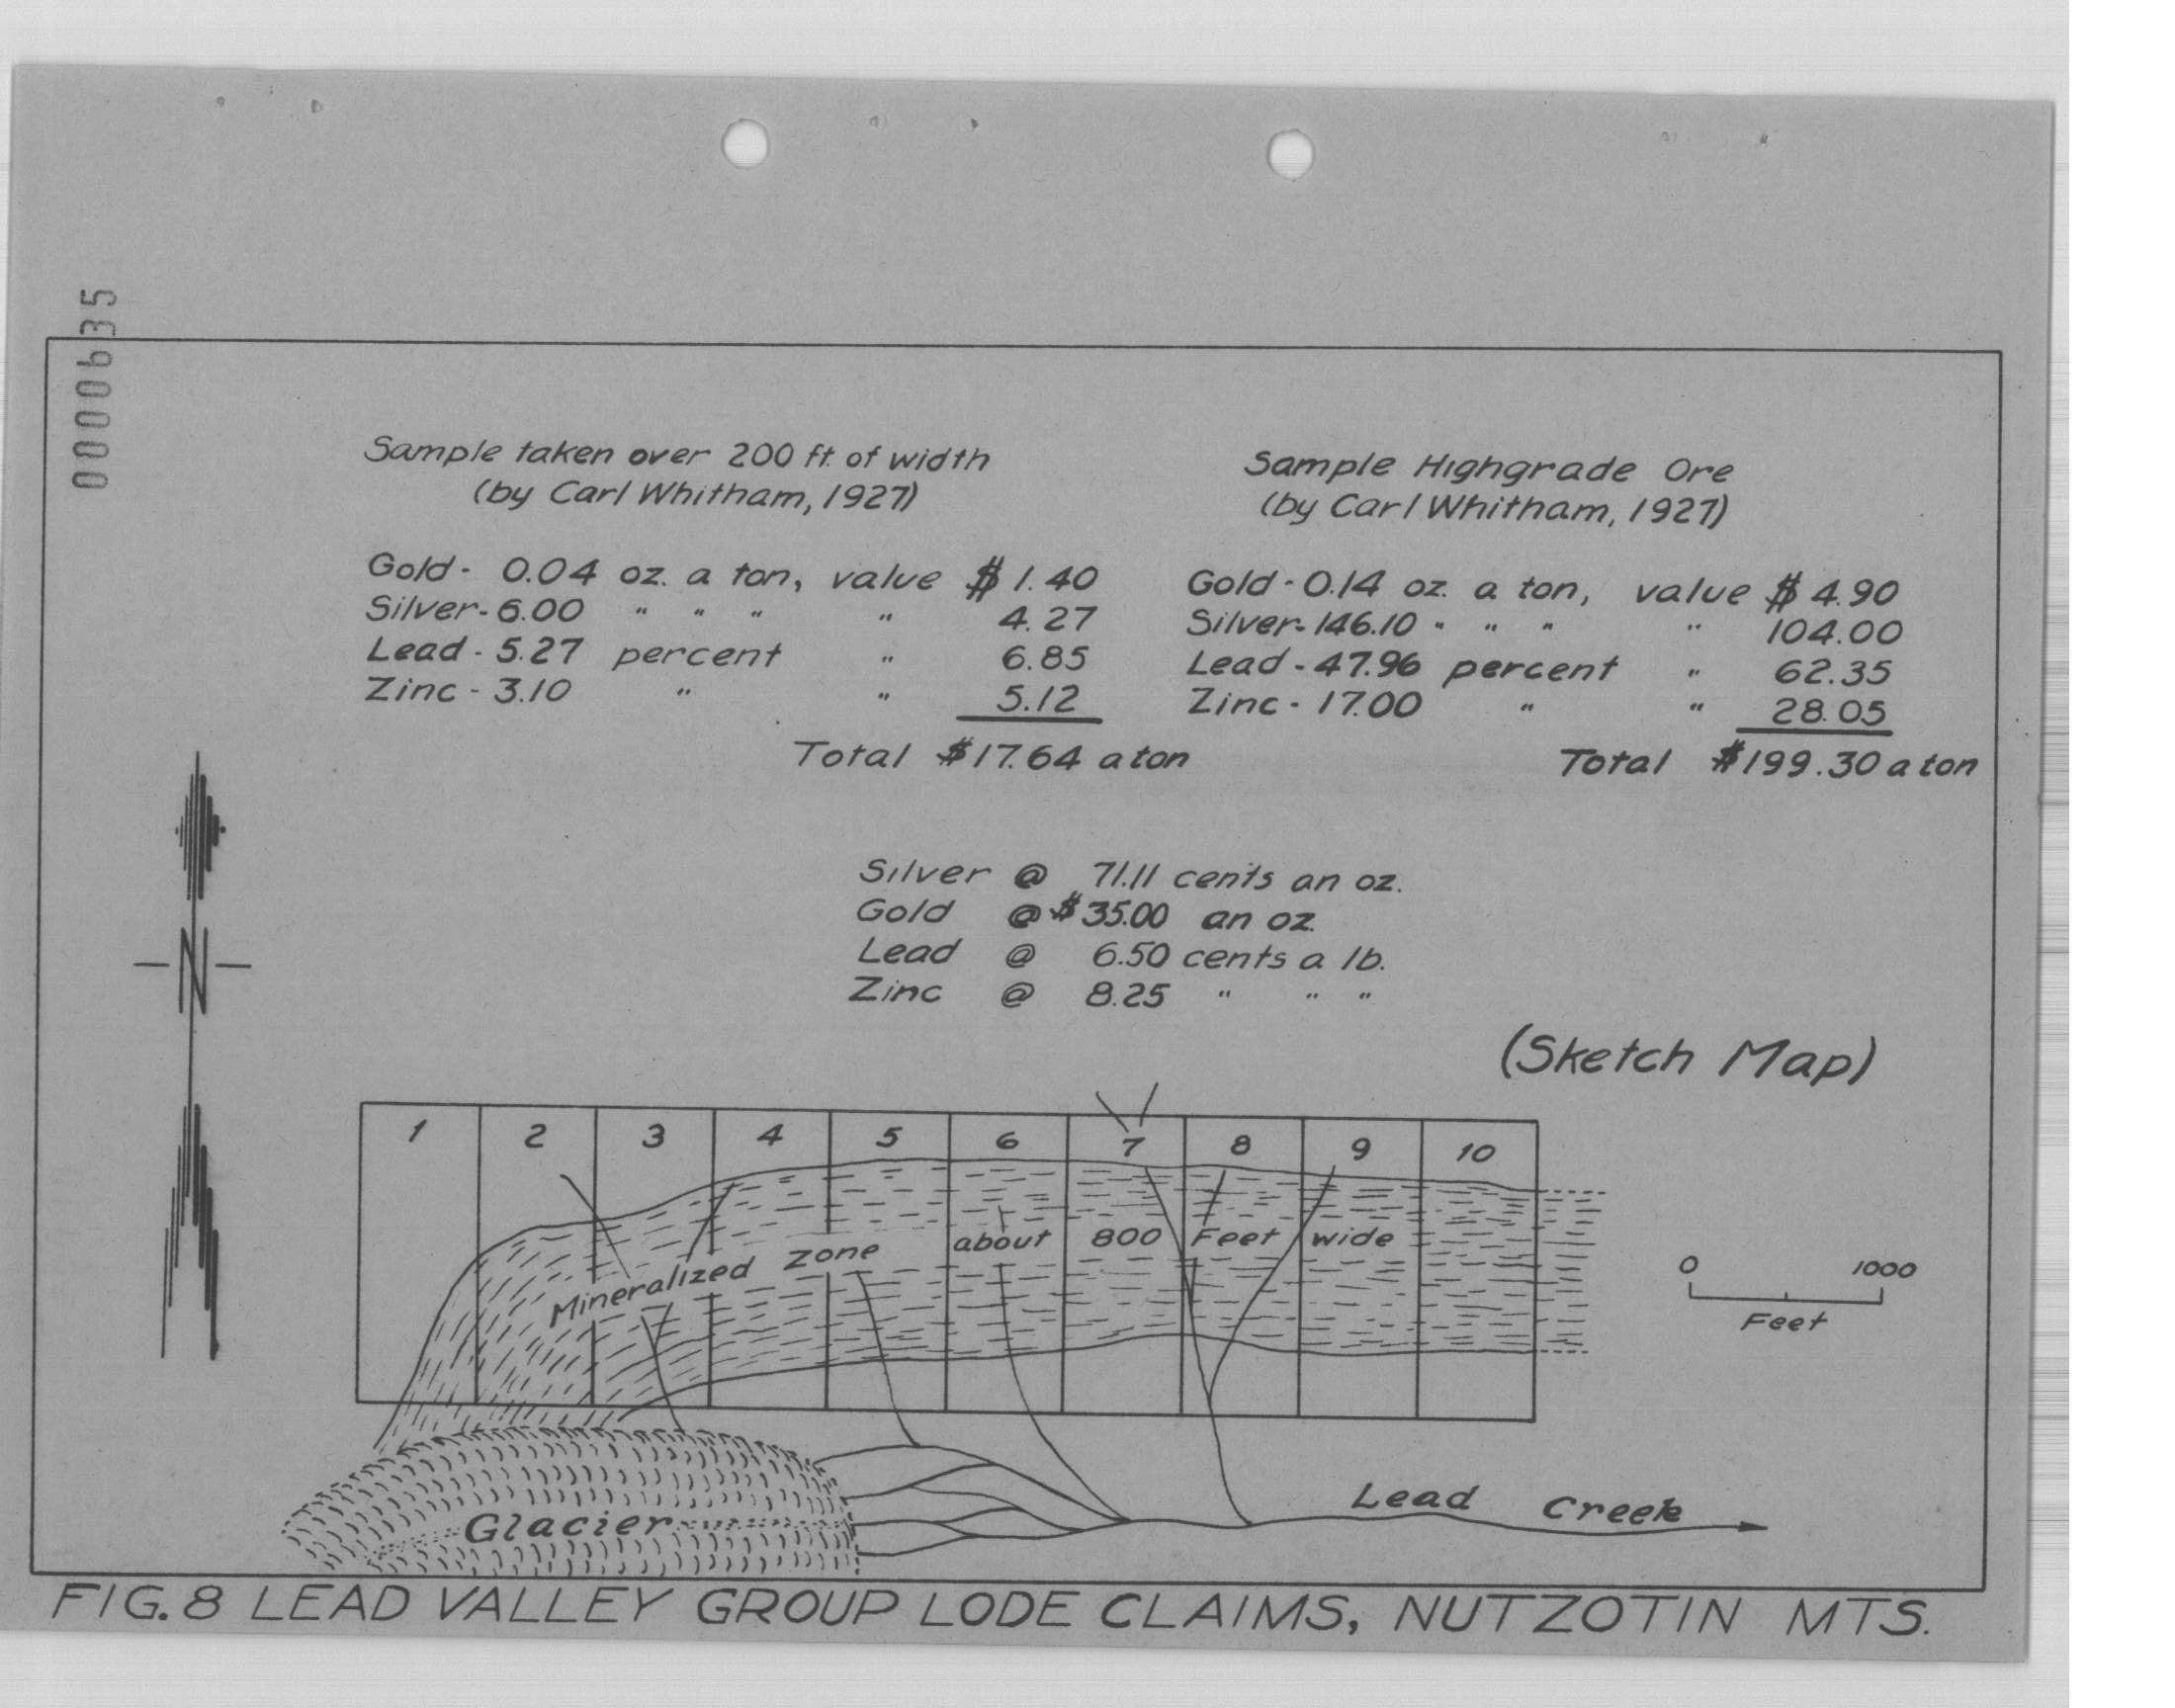 0000635
Sample taken over 200 ft. of width
(by Carl Whitham, 1927)
Gold - 0.04 oz. a ton, value $ 1.40
Silver - 6.00 " " " " 4.27
Lead - 5.27 percent " 6.85
Zinc - 3.10 " " 5.12
Total $17.64 a ton
Sample Highgrade Ore
(by Carl Whitham, 1927)
Gold - 0.14 oz. a ton, value $ 4.90
Silver - 146.10 " " " " 104.00
Lead - 47.96 percent " 62.35
Zinc - 17.00 " " 28.05
Total $199.30 a ton
Silver @ 71.11 cents an oz.
Gold @ $35.00 an oz.
Lead @ 6.50 cents a lb.
Zinc @ 8.25 " " "
N
(Sketch Map)
1 2 3 4 5 6 7 8 9 10
Mineralized Zone about 800 Feet wide
0 1000
Feet
Glacier
Lead Creek
FIG. 8 LEAD VALLEY GROUP LODE CLAIMS, NUTZOTIN MTS.